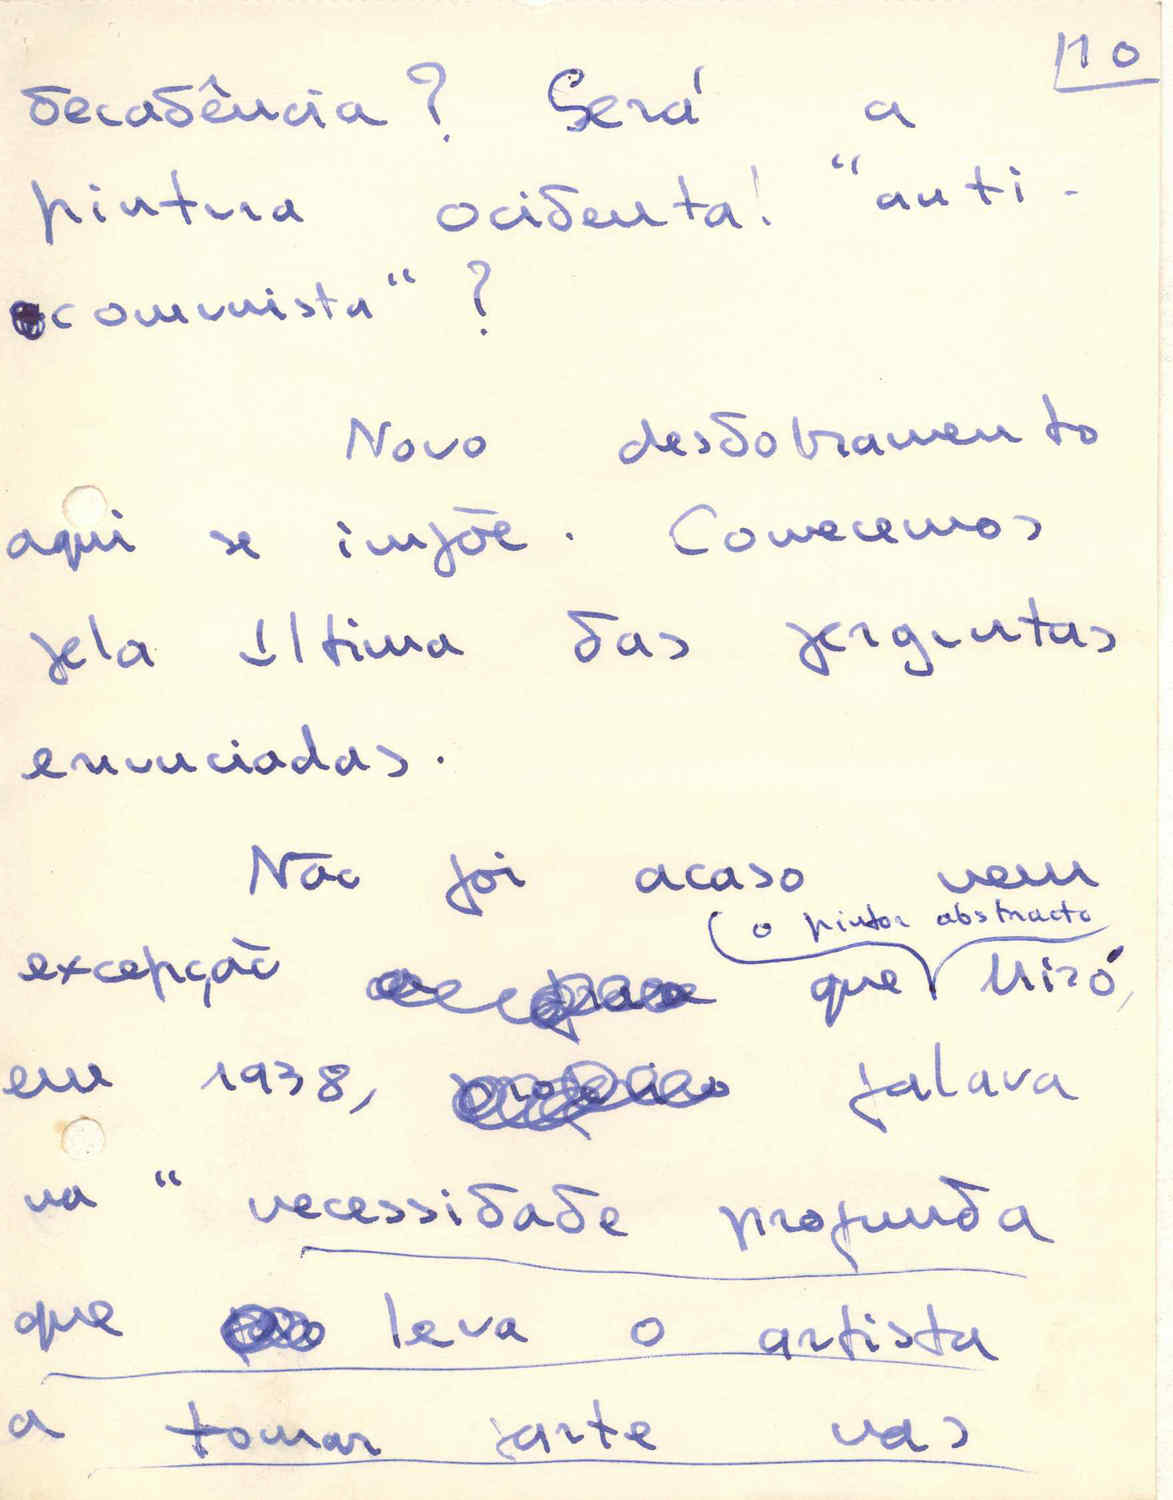 10
decadência? Será a
pintura ocidental "anti-
comunista"?
Novo desdobramento
aqui se impõe. Comecemos
pela última das perguntas
enunciadas.
Não foi acaso nem
o pintor abstracto
excepção que Miró,
em 1938, falava
na "necessidade profunda
que leva o artista
a tomar parte nas